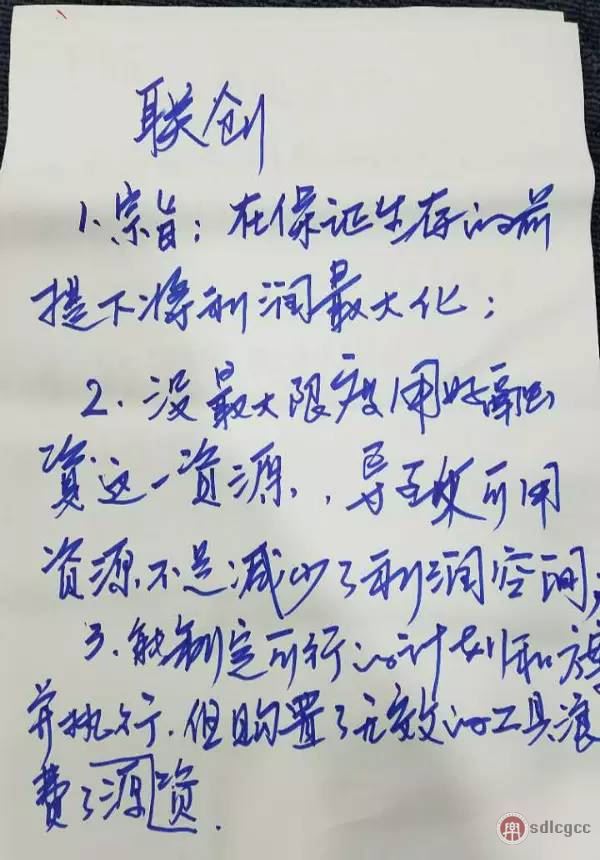 联创
1、宗旨：在保证生存的前
提下将利润最大化；
2、没最大限度用好
资这一资源，导致可用
资源不足减少了利润空间；
3、能制定可行的计划和方案
并执行．但购置了无效的工具浪
费了源资．
sdlcgcc